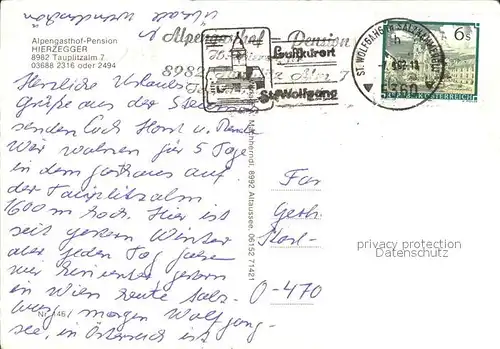 Alpengasthof-Pension
HIERZEGGER
8982 Tauplitzalm 7
03688 2316 oder 2494
Alpengasthof - Pension
8982
Luftkurort
St. Wolfgang
5360
6 S
REPUBLIK ÖSTERREICH
Herzliche Urlaubs
grüße aus der Steiermark
senden Euch Horst u. Renate
Wir wohnen für 5 Tage
in dem Gasthaus auf
der Tauplitzalm
1600 m hoch. Hier ist
seit gestern Winter
aber jeden Tag fahren
wir herunter gestern
in Wien heute Salz-
burg, morgen Wolfgang-
see, in Österreich ist
Fam
Gerh.
Karl-
O-470
8992 Altaussee, 06152 71421
Nr. 146
privacy protection
Datenschutz